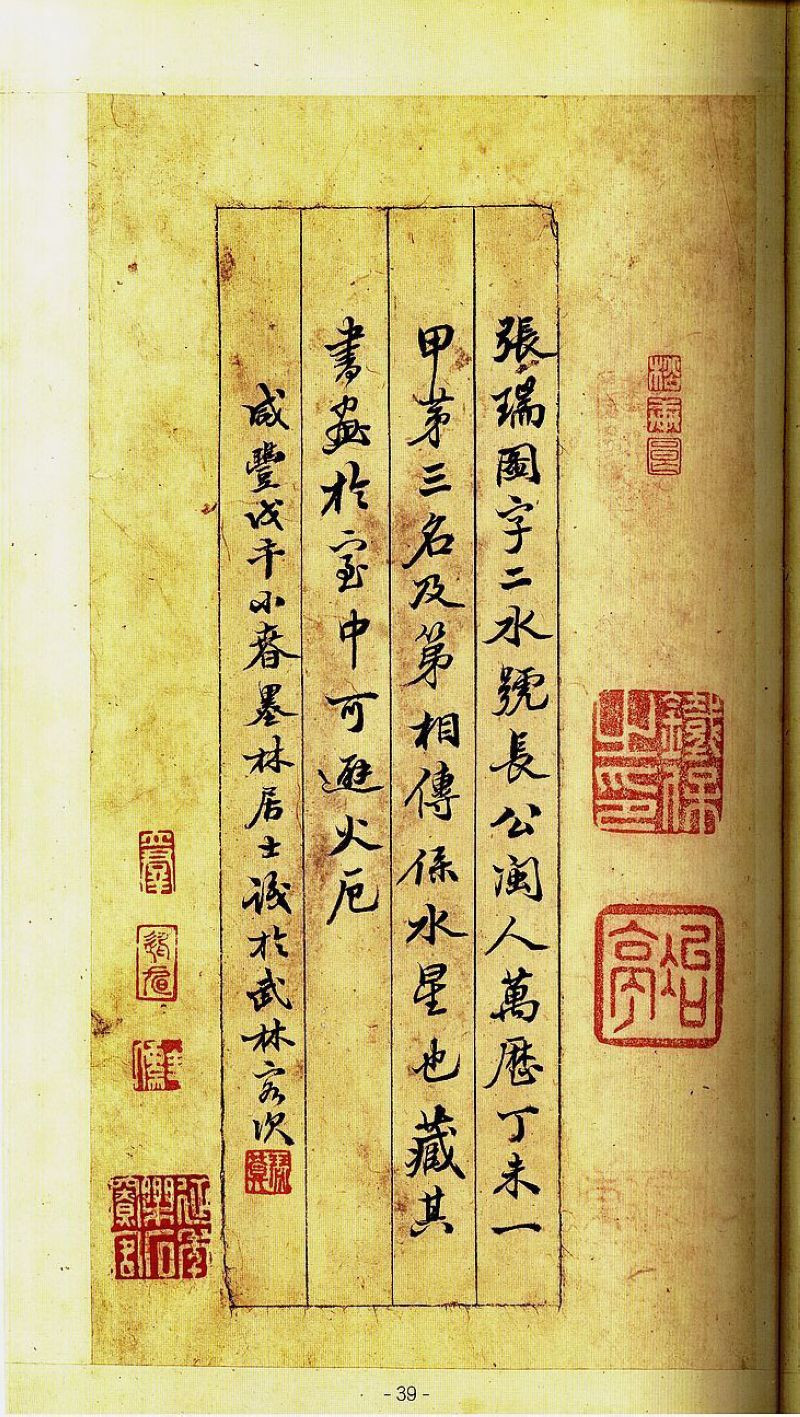 張瑞圖字二水號長公閩人萬歷丁未一
甲苐三名及第相傳係水星也藏其
書畫於室中可避火厄
咸豐戊午小春墨林居士識於武林客次
鐵保之印
- 39 -